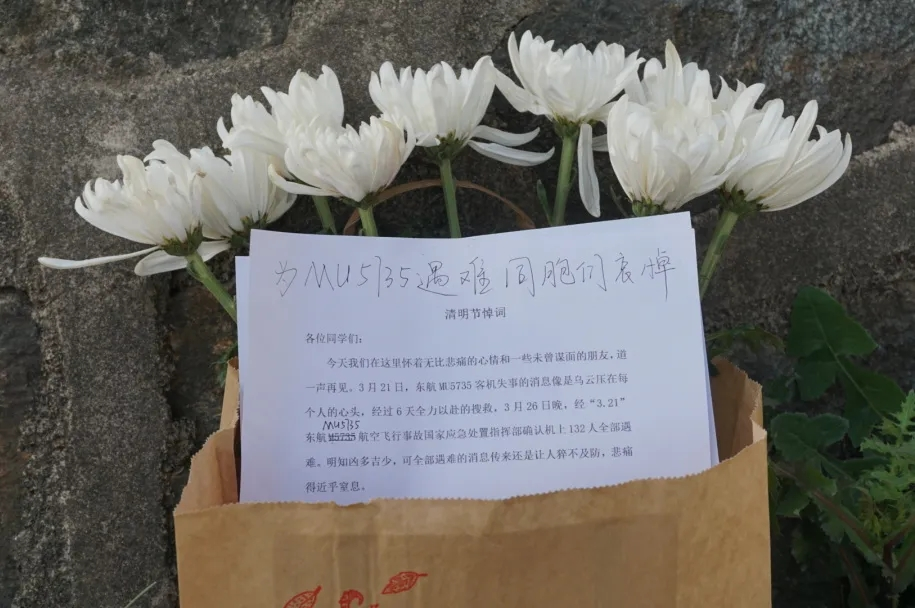 为MU5735遇难同胞们哀悼
清明节悼词
各位同学们：
今天我们在这里怀着无比悲痛的心情和一些未曾谋面的朋友，道
一声再见。3月21日，东航MU5735客机失事的消息像是乌云压在每
个人的心头，经过6天全力以赴的搜救，3月26日晚，经“3.21”
MU5735
东航U5735航空飞行事故国家应急处置指挥部确认机上132人全部遇
难。明知凶多吉少，可全部遇难的消息传来还是让人猝不及防，悲痛
得近乎窒息。